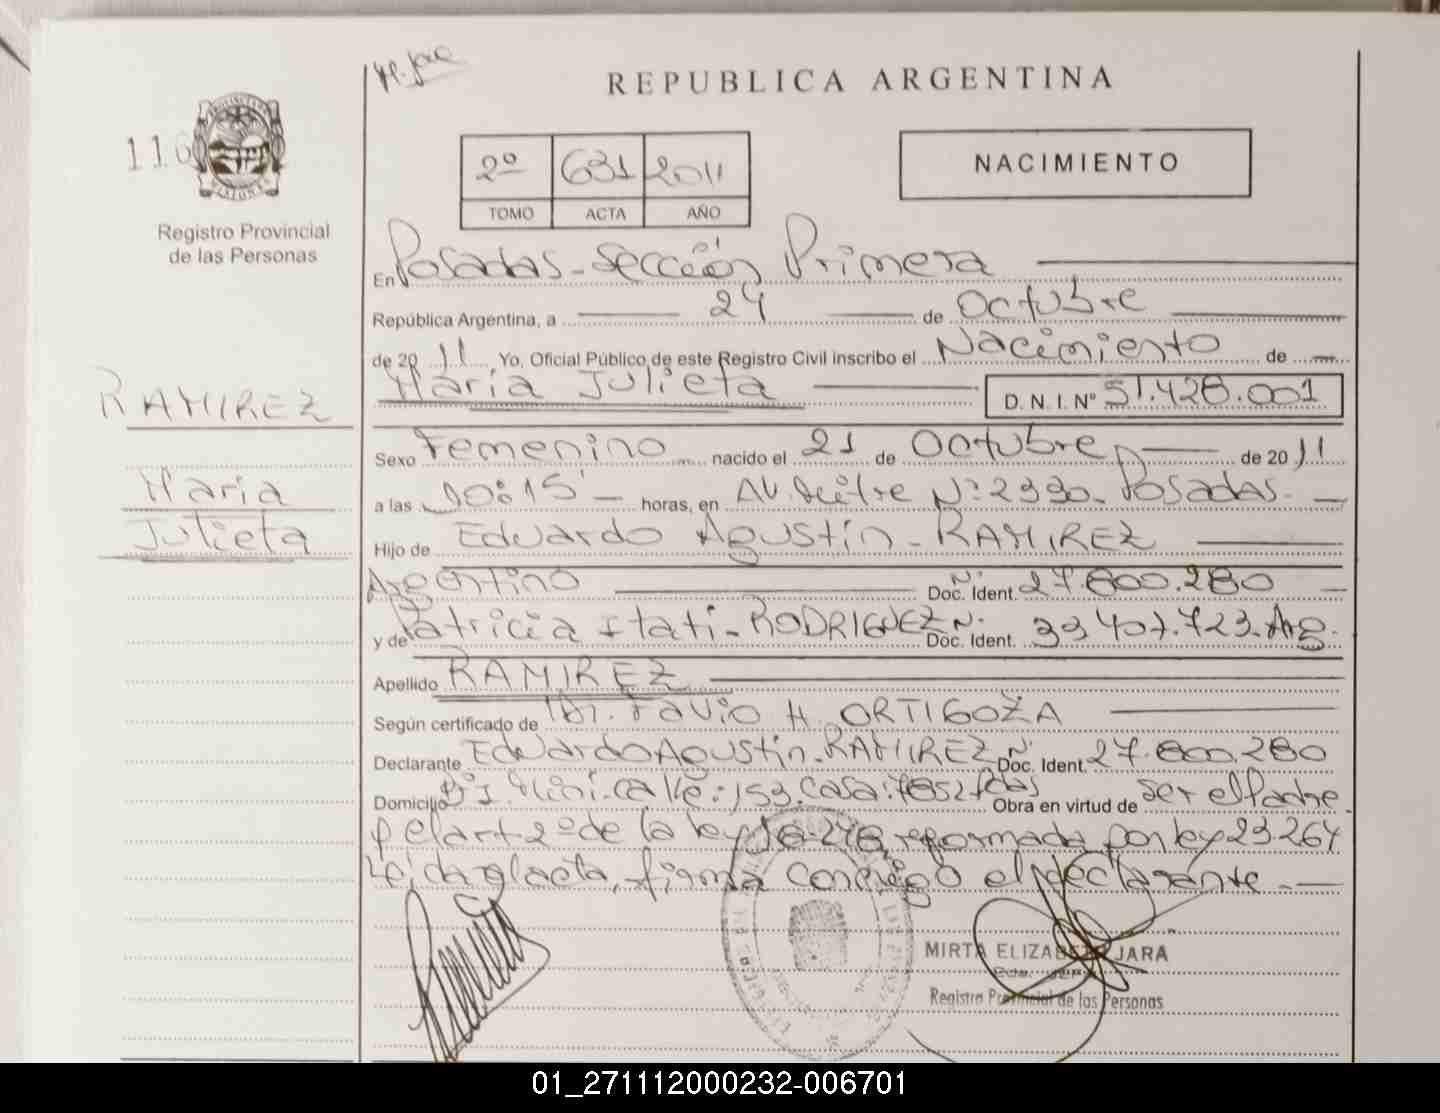 M. Jara
REPUBLICA ARGENTINA
116
2º 631 2011
TOMO ACTA AÑO
NACIMIENTO
Registro Provincial
de las Personas
En Posadas - Sección Primera
República Argentina, a 24 de Octubre
de 2011 Yo, Oficial Público de este Registro Civil inscribo el Nacimiento de
María Julieta D.N.I. Nº 51.428.001
RAMIREZ
María
Julieta
Sexo Femenino nacido el 21 de Octubre de 2011
a las 10:15' horas, en AV. Mitre Nº 2330 - Posadas.
Hijo de Eduardo Agustín - RAMIREZ
Argentino Doc. Ident. Nº 27.800.280
y de Patricia Itati - RODRIGUEZ Doc. Ident. Nº 33.407.723. Arg.
Apellido RAMIREZ
Según certificado de Dr. Favio H. ORTIGOZA
Declarante Eduardo Agustín - RAMIREZ Doc. Ident. Nº 27.800.280
Domicilio calle: 153. Casa: 7852 Pdas Obra en virtud de ser el Padre
p el art 2º de la ley 18.248 reformada por ley 23.264
Leída el acta, firma conmigo el declarante.
MIRTA ELIZABETH JARA
Registro Provincial de las Personas
01_271112000232-006701